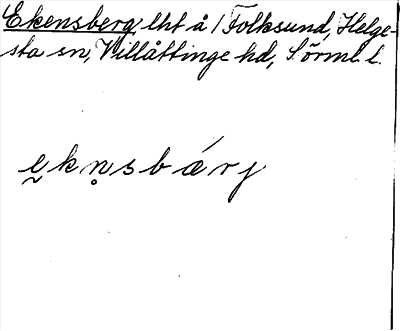 Ekensberg, lht å / Folksund, Helge-
sta sn, Villåttinge hd, Sörml. l.
e̮ kn̥sbárj